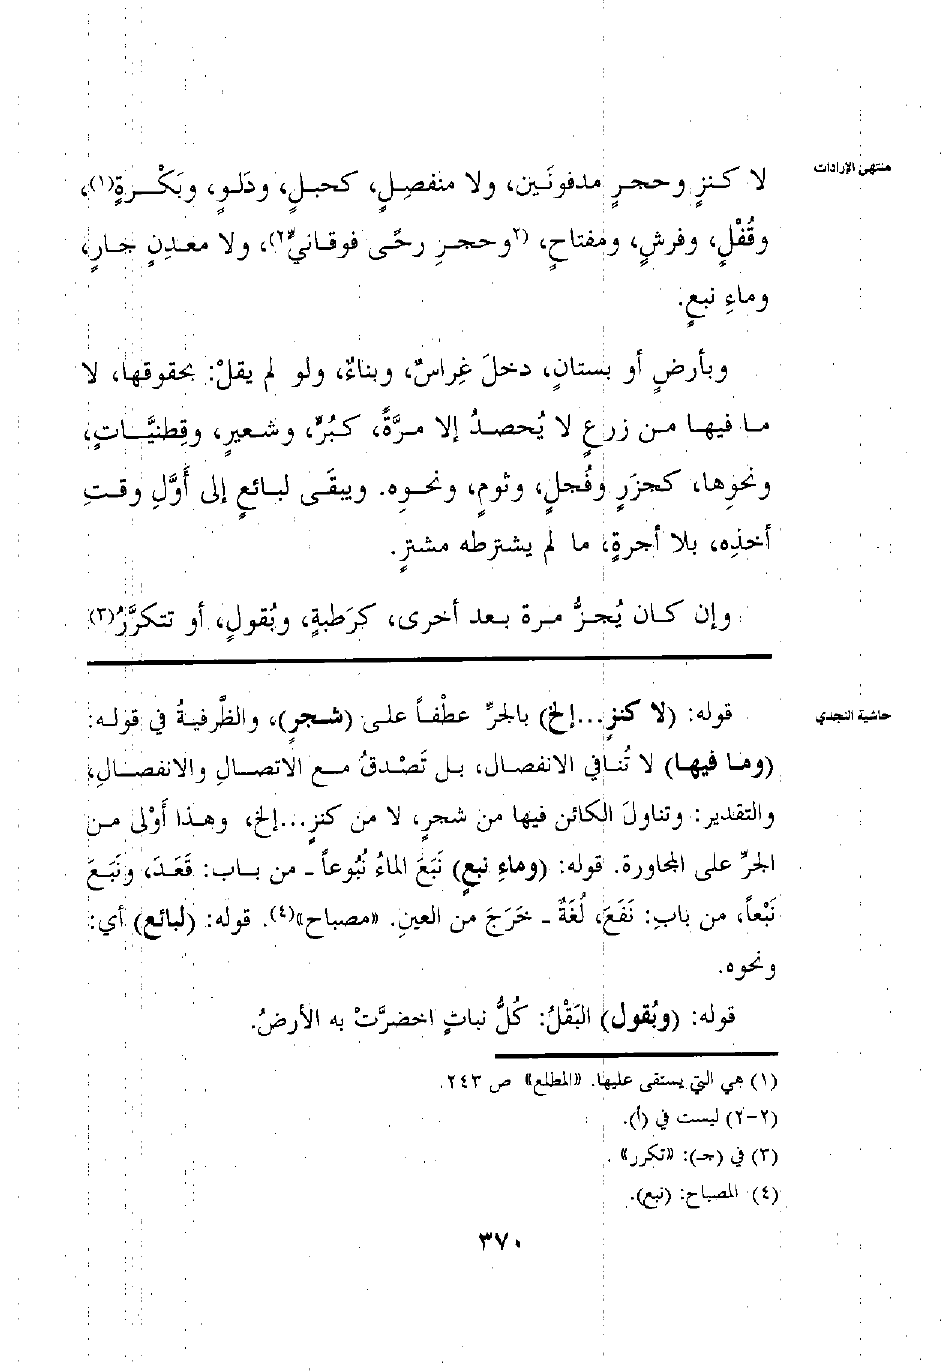 منتهى الإرادات
لا كنزٍ وحجرٍ مدفونَين، ولا منفصِلٍ، كحبلٍ، ودَلوٍ، وبَكْرةٍ(١)،
وقُفْلٍ، وفرشٍ، ومفتاحٍ، (٢وحجرِ رحًى فوقانيٍّ٢)، ولا معدنٍ جارٍ،
وماءِ نبعٍ.
وبأرضٍ أو بستانٍ، دخلَ غِراسٌ، وبناءٌ، ولو لم يقلْ: بحقوقها، لا
ما فيها من زرعٍ لا يُحصدُ إلا مرَّةً، كبُرٍّ، وشعيرٍ، وقِطنيَّاتٍ،
ونحوِها، كجزَرٍ وفُجلٍ، وثومٍ، ونحوِه. ويبقَى لبائعٍ إلى أوَّلِ وقتِ
أخذِه، بلا أجرةٍ، ما لم يشترطه مشترٍ.
وإن كان يُجزُّ مرة بعد أخرى، كرَطبةٍ، وبُقولٍ، أو تتكرَّرُ(٣)
حاشية النجدي
قوله: (لا كنزٍ...إلخ) بالجرِّ عطْفاً على (شجرٍ)، والظَّرفيةُ في قوله:
(وما فيها) لا تُنافي الانفصال، بل تَصْدقُ مع الاتصالِ والانفصالِ،
والتقدير: وتناولَ الكائن فيها من شجرٍ، لا من كنزٍ...إلخ، وهذا أوْلى من
الجرِّ على المجاورة. قوله: (وماءِ نبعٍ) نَبَعَ الماءُ نُبُوعاً ـ من باب: قَعَدَ، ونَبَعَ
نَبْعاً، من بابِ: نَفَعَ، لُغَةٌ ـ خَرَجَ من العينِ. «مصباح»(٤). قوله: (لبائع) أي:
ونحوه.
قوله: (وبُقول) البَقْلُ: كُلُّ نباتٍ اخضرَّتْ به الأرضُ.
(١) هي التي يستقى عليها. «المطلع» ص ٢٤٣.
(٢-٢) ليست في (أ).
(٣) في (جـ): «تكرر».
(٤) المصباح: (نبع).
٣٧٠